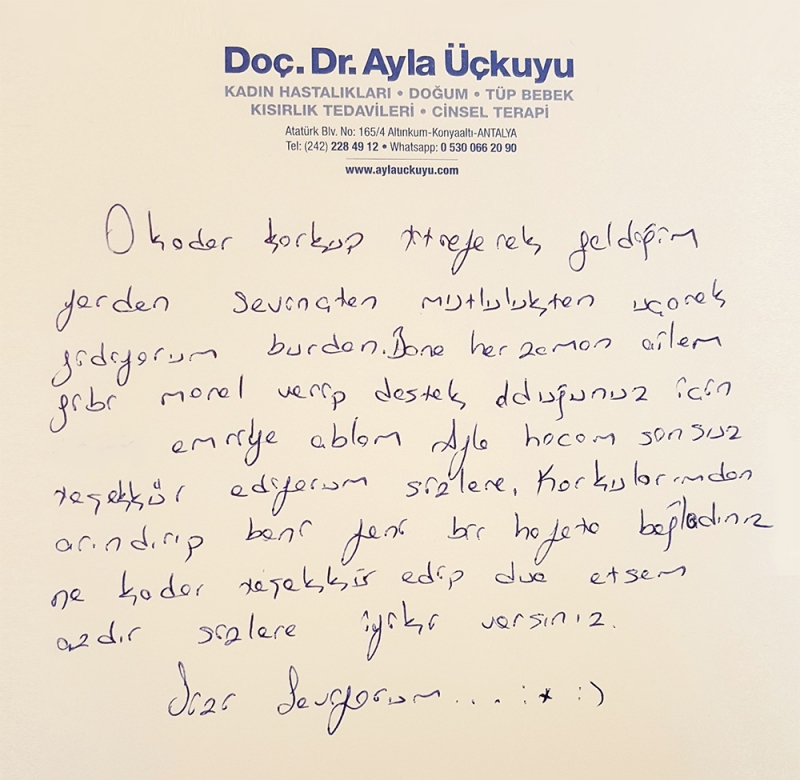 Doç. Dr. Ayla Üçkuyu
KADIN HASTALIKLARI • DOĞUM • TÜP BEBEK
KISIRLIK TEDAVİLERİ • CİNSEL TERAPİ
Atatürk Blv. No: 165/4 Altınkum-Konyaaltı-ANTALYA
Tel: (242) 228 49 12 • Whatsapp: 0 530 066 20 90
www.aylauckuyu.com
O kadar korkup titreyerek geldiğim
yerden sevinçten mutluluktan uçarak
gidiyorum burdan. Bana her zaman ailem
gibi moral verip destek olduğunuz için
emriye ablam Ayla hocam sonsuz
teşekkür ediyorum sizlere. Korkularımdan
arındırıp beni yeni bir hayata bağladınız
ne kadar teşekkür edip dua etsem
azdır sizlere iyiki varsınız.
Sizi Seviyorum....:* :)